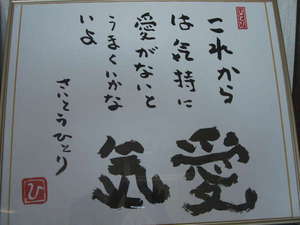 これから
は気持に
愛がないと
うまくいかな
いよ
さいとうひとり
愛気
ひ